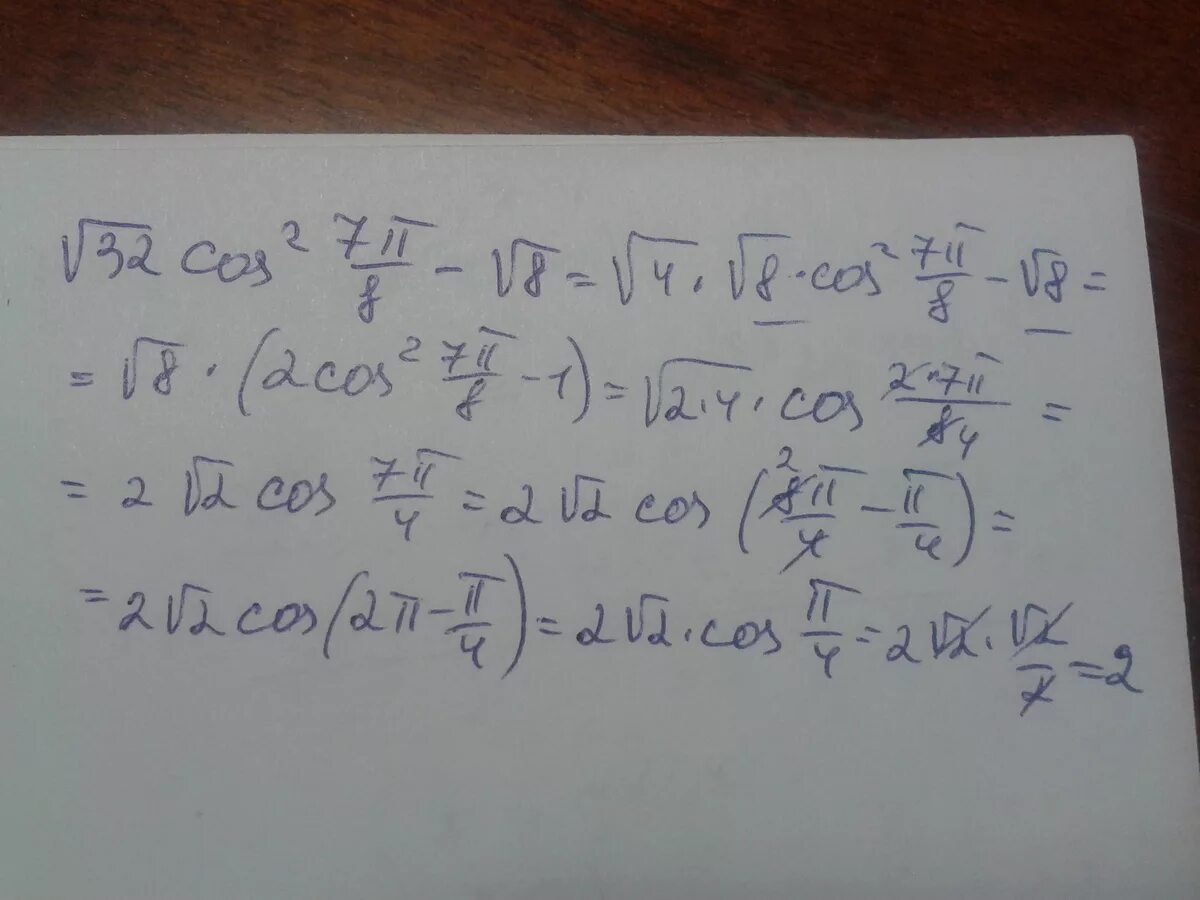 √32 cos² 7π/8 - √8 = √4 · √8 · cos² 7π/8 - √8 =
= √8 · (2cos² 7π/8 - 1) = √2·4 · cos 2·7π/84 =
= 2√2 cos 7π/4 = 2√2 cos (28π/4 - π/4) =
= 2√2 cos(2π - π/4) = 2√2 · cos π/4 = 2√2 · √2/2 = 2